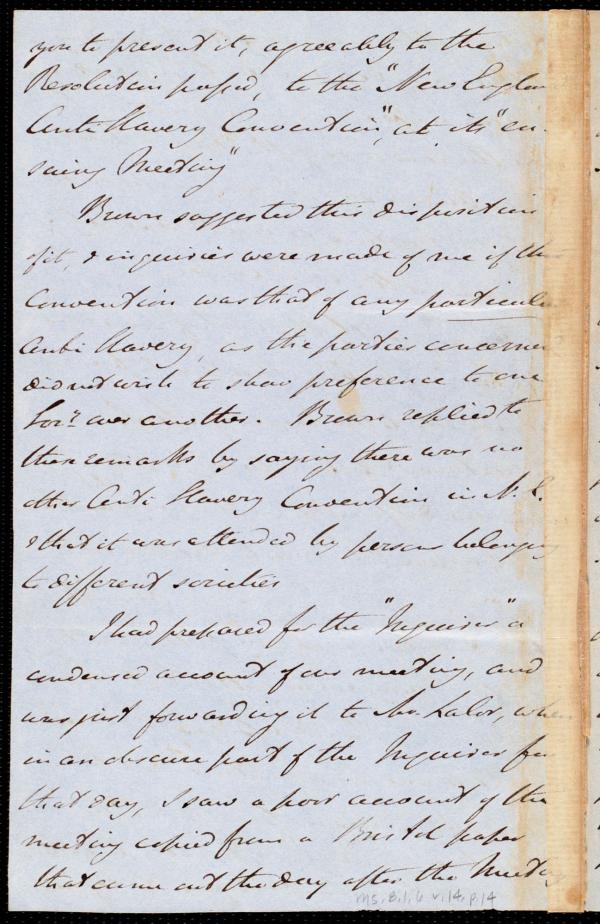 you to present it, agreeably to the
Resolution passed, to the "New England
Anti Slavery Convention", at its "en-
suing Meeting"
Brown suggested this disposition
of it, & inquiries were made of me if the
Convention was that of any particular
Anti Slavery, as the parties concerned
did not wish to show preference to one
Socy. over another. Brown replied to
these remarks by saying there was no
other Anti Slavery Convention in N. E.
& that it was attended by persons belonging
to different societies
I had prepared for the "Inquirer" a
condensed account of our meeting, and
was just forwarding it to Mr. Lalor, when
in an obscure part of the Inquirer for
that day, I saw a poor account of the
meeting copied from a Bristol paper
that came out the day after the Meeting
Ms. B.1.6 v.14, p.14